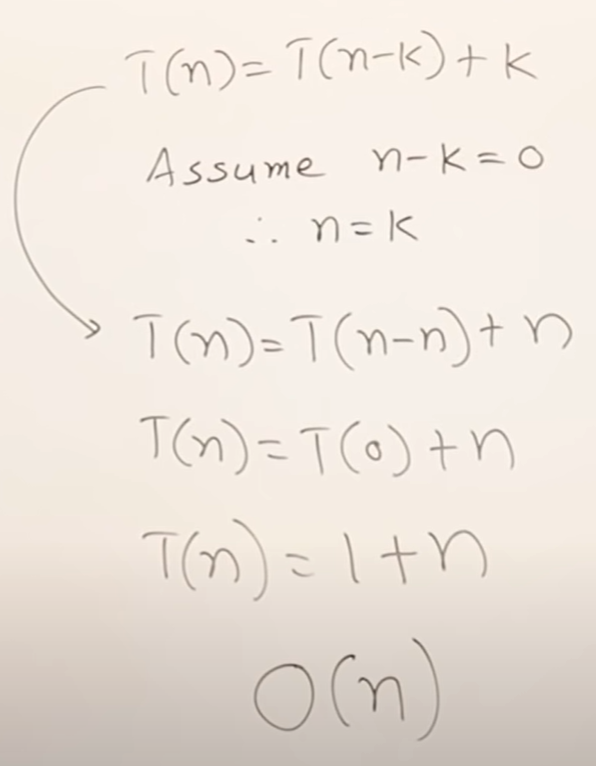 T(n) = T(n-k) + k
Assume n-k = 0
∴ n = k
T(n) = T(n-n) + n
T(n) = T(0) + n
T(n) = 1 + n
O(n)